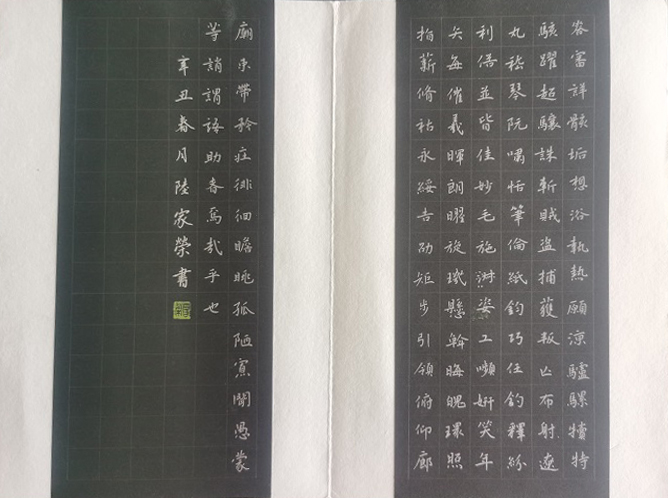 答審詳骸垢想浴執熱願涼驢騾犢特
駭躍超驤誅斬賊盜捕獲叛亡布射遼
丸嵇琴阮嘯恬筆倫紙鈞巧任釣釋紛
利俗並皆佳妙毛施淑姿工嚬妍笑年
矢每催羲暉朗曜旋璣懸斡晦魄環照
指薪脩祜永綏吉劭矩步引領俯仰廊
廟束帶矜莊徘徊瞻眺孤陋寡聞愚蒙
等誚謂語助者焉哉乎也
辛丑春月陸家榮書